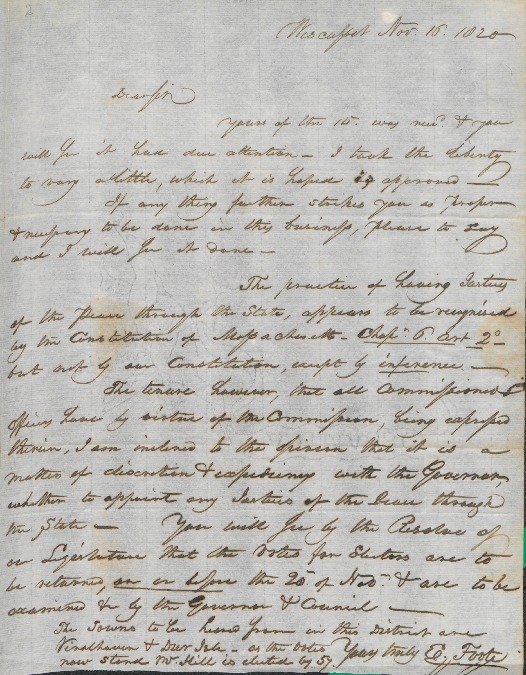 2
Wiscasset Nov. 16. 1820
Dear Sir
yours of the 14. was recd. & you
will see it had due attention - I took the liberty
to vary a little, which it is hoped is approved -
If any thing further strikes you as proper
& necessary to be done in this business, please to say
and I will see it done -
The practice of having Justices
of the Peace through the State, appears to be recognised
by the Constitution of Massachusetts - Chap. 6. art 2d -
but not by our Constitution, except by inference. -
The tenure however, that all Commissioned
officers have by virtue of the Commission, being expressed
therein, I am inclined to the opinion that it is a
matter of discretion & expediency with the Governor,
whether to appoint any Justices of the Peace through
the State - You will see by the Resolve of
our Legislature that the Votes for Electors are to
be returned, on or before the 20th of Nov. & are to be
examined &c by the Governor & Council -
The Towns to be heard from in this District are
Vinalhaven & Deer Isle - as the votes
now stand Mr. Hill is elected by 57.
Yours truly E. Foote